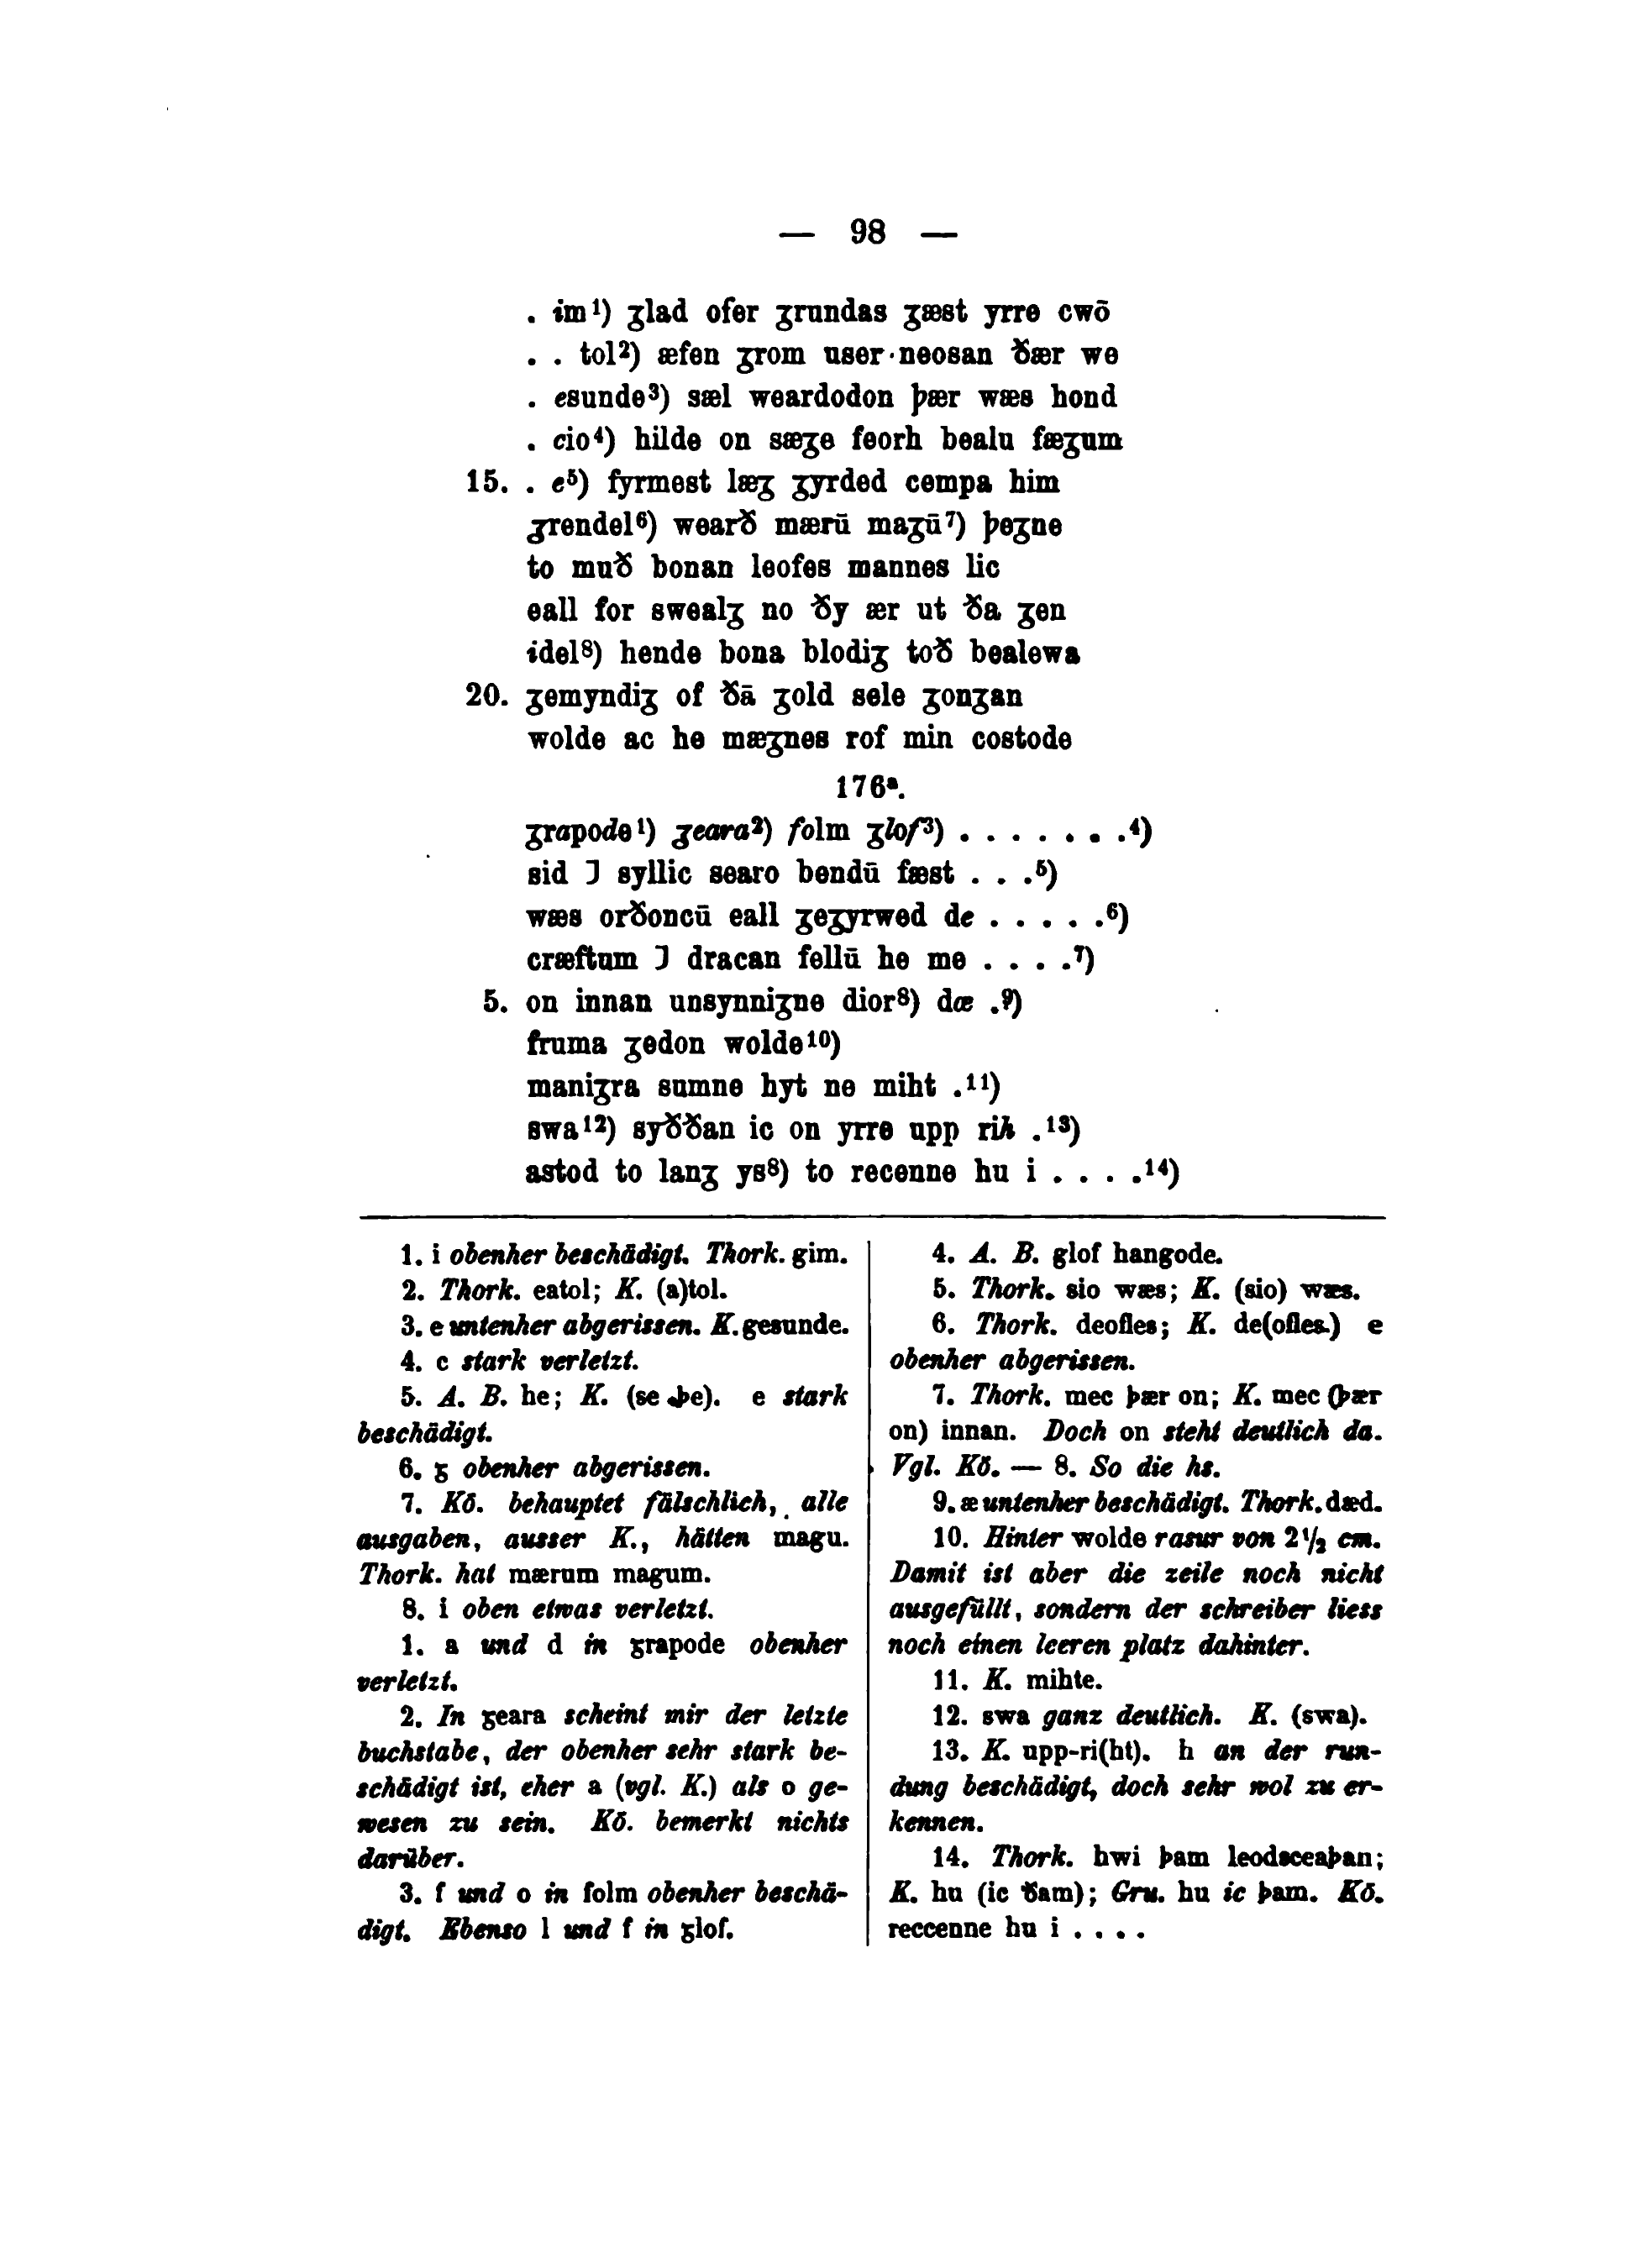 — 98 —
. im¹) ȝlad ofer ȝrundas ȝæst yrre cwō
. . tol²) æfen ȝrom user·neosan ðær we
. esunde³) sæl weardodon þær wæs hond
. cio⁴) hilde on sæȝe feorh bealu fæȝum
15. . e⁵) fyrmest læȝ ȝyrded cempa him
ȝrendel⁶) wearð mærū maȝū⁷) þeȝne
to muð bonan leofes mannes lic
eall for swealȝ no ðy ær ut ða ȝen
idel⁸) hende bona blodiȝ toð bealewa
20. ȝemyndiȝ of ðā ȝold sele ȝonȝan
wolde ac he mæȝnes rof min costode
176ᵃ.
ȝrapode¹) ȝeara²) folm ȝlof³) . . . . . . .⁴)
sid ⁊ syllic searo bendū fæst . . .⁵)
wæs orðoncū eall ȝeȝyrwed de . . . . .⁶)
cræftum ⁊ dracan fellū he me . . . .⁷)
5. on innan unsynniȝne dior⁸) dæ .⁹)
fruma ȝedon wolde¹⁰)
maniȝra sumne hyt ne miht .¹¹)
swa¹²) syððan ic on yrre upp rih .¹³)
astod to lanȝ ys⁸) to recenne hu i . . . .¹⁴)
1. i obenher beschädigt. Thork. gim.
2. Thork. eatol; K. (a)tol.
3. e untenher abgerissen. K. gesunde.
4. c stark verletzt.
5. A. B. he; K. (se þe). e stark
beschädigt.
6. ȝ obenher abgerissen.
7. Kö. behauptet fälschlich, alle
ausgaben, ausser K., hätten magu.
Thork. hat mærum magum.
8. i oben etwas verletzt.
1. a und d in ȝrapode obenher
verletzt.
2. In ȝeara scheint mir der letzte
buchstabe, der obenher sehr stark be-
schädigt ist, eher a (vgl. K.) als o ge-
wesen zu sein. Kö. bemerkt nichts
darüber.
3. f und o in folm obenher beschä-
digt. Ebenso l und f in ȝlof.
4. A. B. glof hangode.
5. Thork. sio wæs; K. (sio) wæs.
6. Thork. deofles; K. de(ofles.) e
obenher abgerissen.
7. Thork. mec þær on; K. mec (þær
on) innan. Doch on steht deutlich da.
Vgl. Kö. — 8. So die hs.
9. æ untenher beschädigt. Thork. dæd.
10. Hinter wolde rasur von 2½ cm.
Damit ist aber die zeile noch nicht
ausgefüllt, sondern der schreiber liess
noch einen leeren platz dahinter.
11. K. mihte.
12. swa ganz deutlich. K. (swa).
13. K. upp-ri(ht). h an der run-
dung beschädigt, doch sehr wol zu er-
kennen.
14. Thork. hwi þam leodsceaþan;
K. hu (ic ðam); Gru. hu ic þam. Kö.
reccenne hu i . . . .